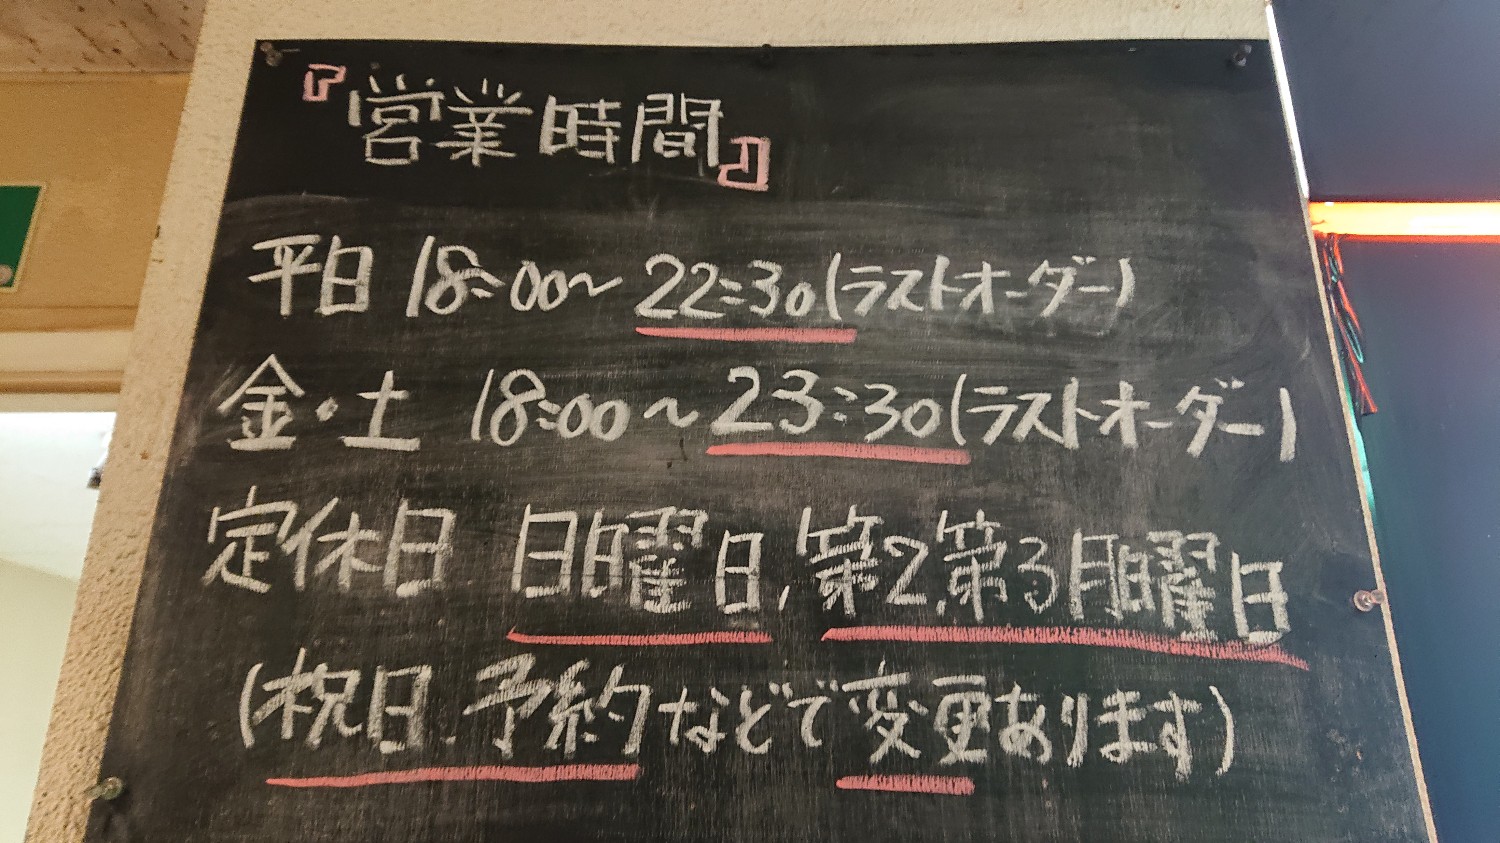 『営業時間』
平日 18:00～22:30(ラストオーダー)
金・土 18:00～23:30(ラストオーダー)
定休日 日曜日,第2,第3月曜日
(祝日.予約などで変更あります)